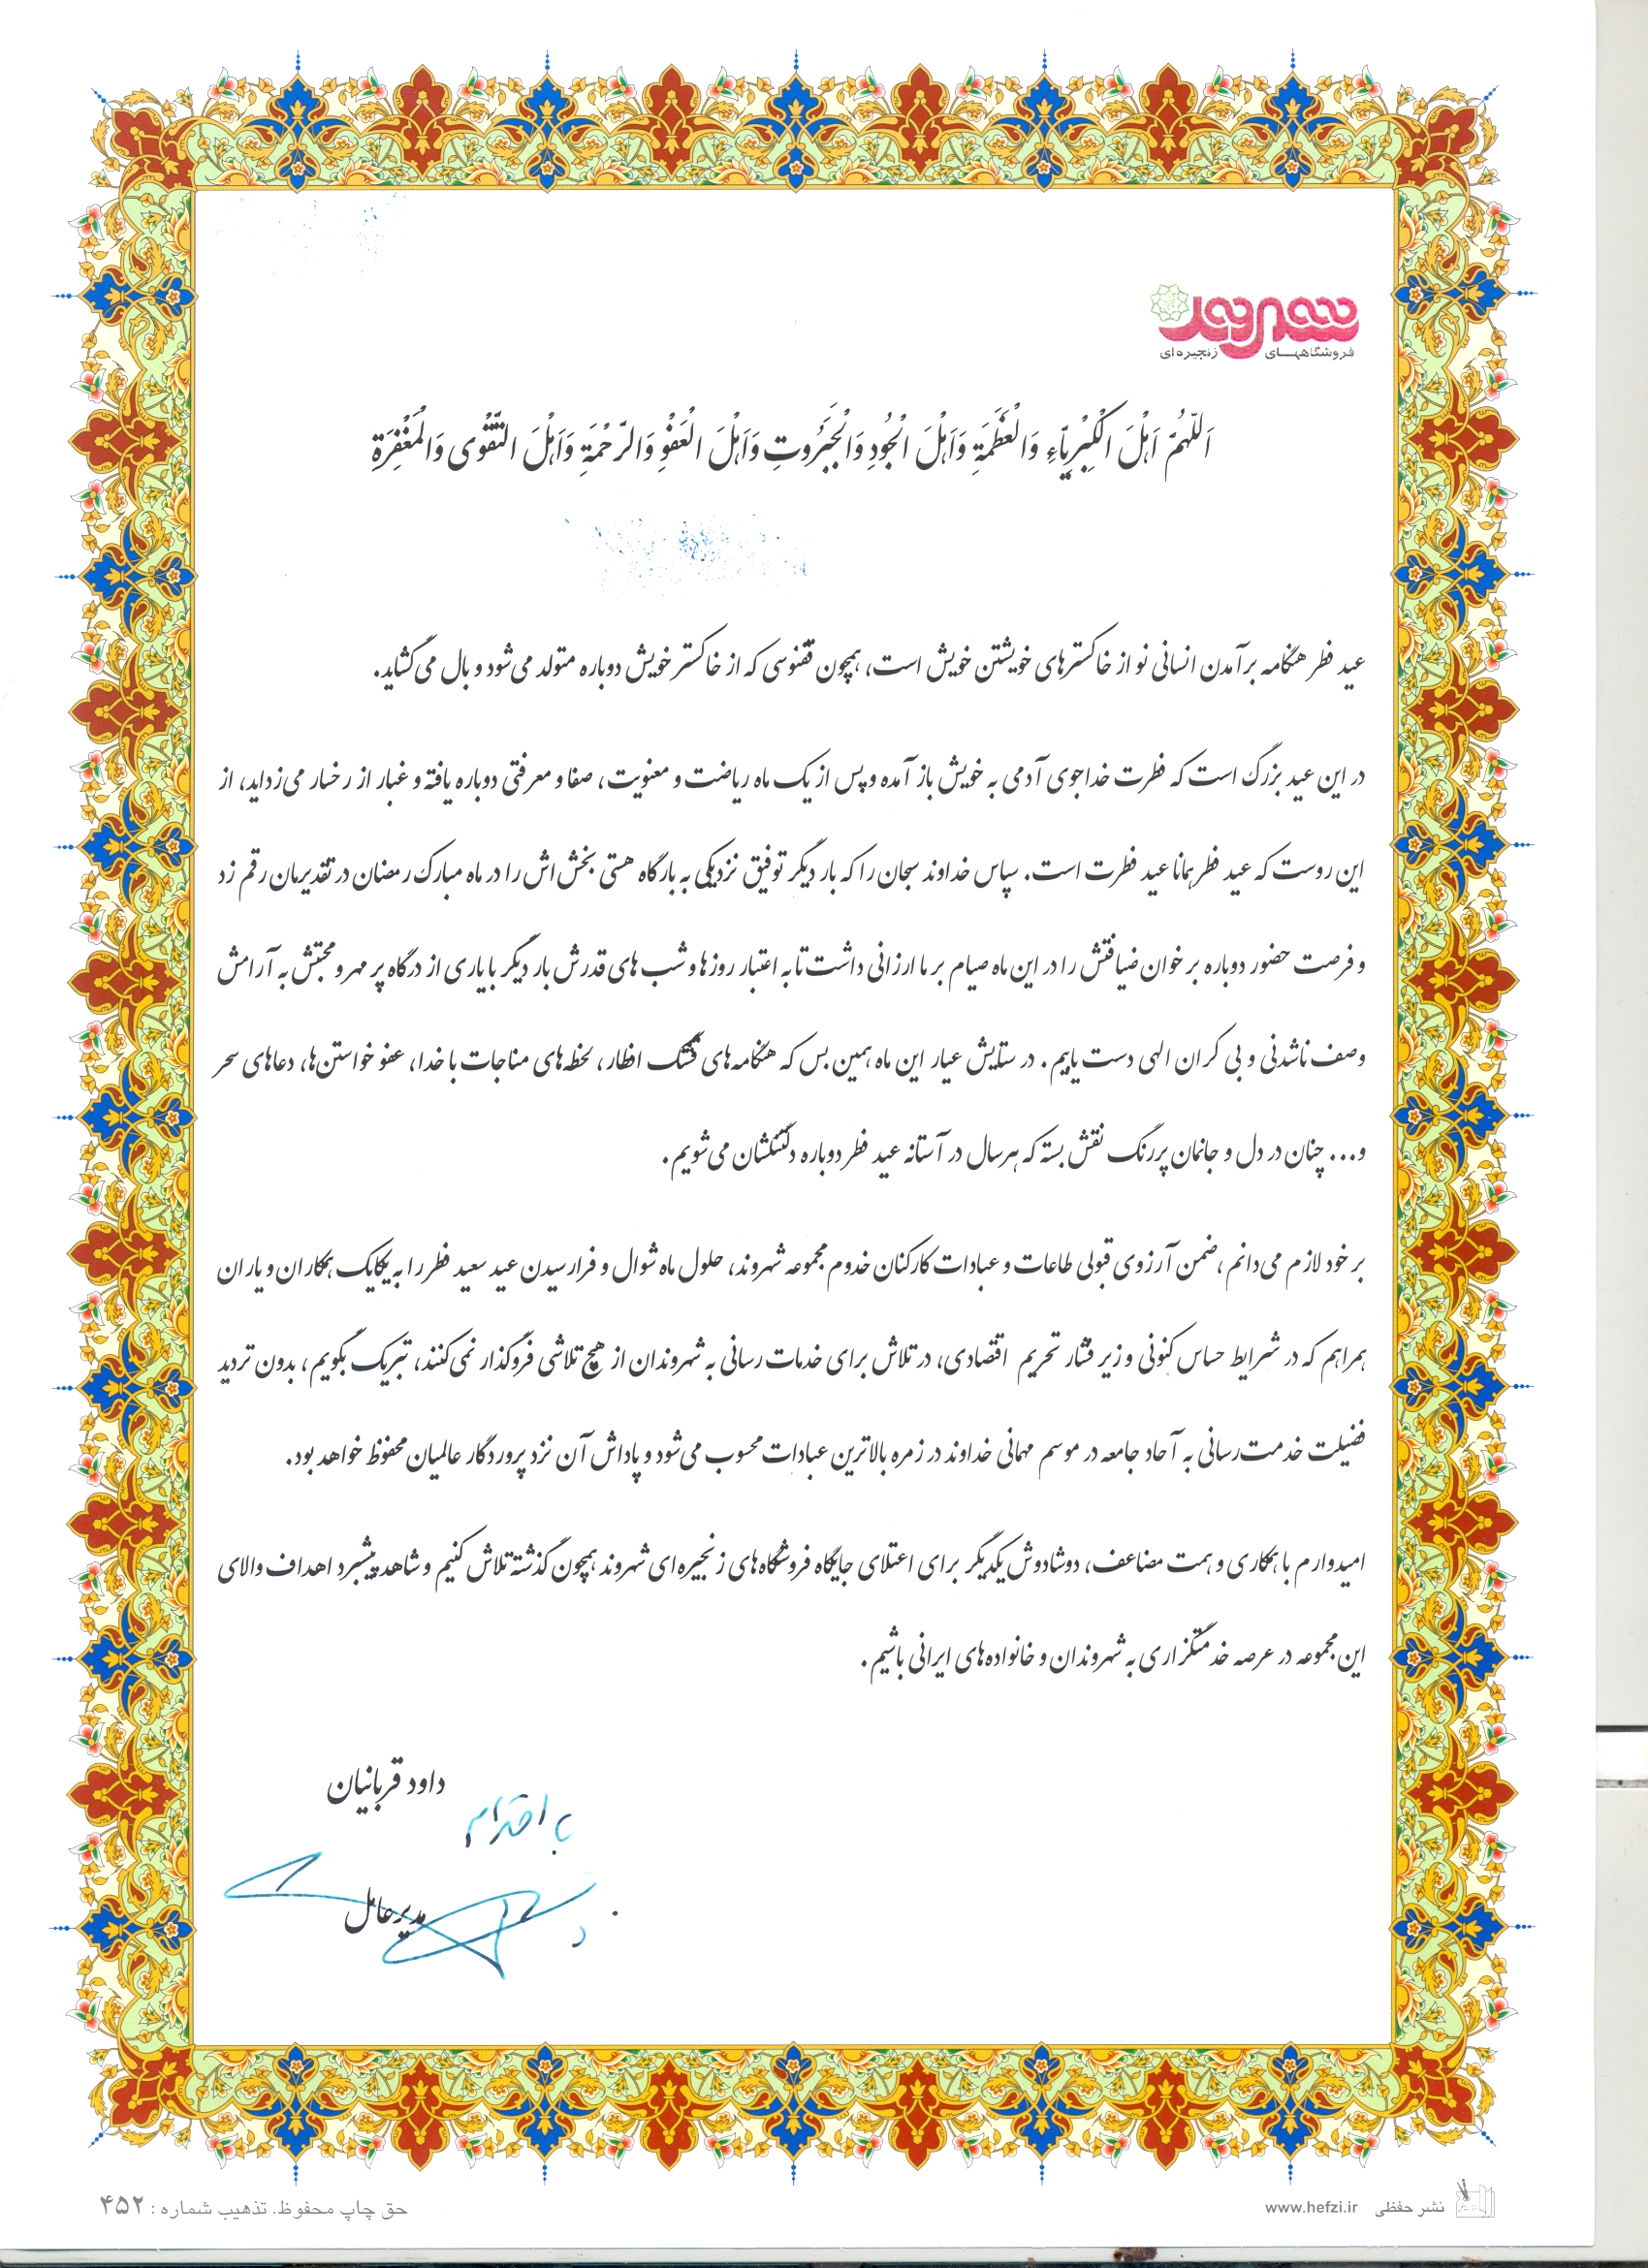 شهروند
فروشگاههای زنجیره‌ای
اَللّهُمَّ اَهْلَ الْکِبْرِیاءِ وَالْعَظَمَةِ وَاَهْلَ الْجُودِ وَالْجَبَرُوتِ وَاَهْلَ الْعَفْوِ وَالرَّحْمَةِ وَاَهْلَ التَّقْوی وَالْمَغْفِرَةِ
عید فطر هنگامه برآمدن انسانی نو از خاکسترهای خویشتن خویش است، همچون ققنوسی که از خاکستر خویش دوباره متولد می‌شود و بال می‌گشاید.
در این عید بزرگ است که فطرت خداجوی آدمی به خویش باز آمده و پس از یک ماه ریاضت و معنویت، صفا و معرفتی دوباره یافته و غبار از رخسار می‌زداید، از
این روست که عید فطر همانا عید فطرت است. سپاس خداوند سبحان را که بار دیگر توفیق نزدیکی به بارگاه هستی بخش اش را در ماه مبارک رمضان در تقدیرمان رقم زد
و فرصت حضور دوباره بر خوان ضیافتش را در این ماه صیام بر ما ارزانی داشت تا به اعتبار روزها و شب های قدرش بار دیگر با یاری از درگاه پر مهر و محبتش به آرامش
وصف ناشدنی و بی کران الهی دست یابیم. در ستایش عیار این ماه همین بس که هنگامه‌های قشنگ افطار، لحظه‌های مناجات با خدا، عفو خواستن‌ها، دعاهای سحر
و... چنان در دل و جانمان پررنگ نقش بسته که هرسال در آستانه عید فطر دوباره دلتنگشان می‌شویم.
بر خود لازم می‌دانم، ضمن آرزوی قبولی طاعات و عبادات کارکنان خدوم مجموعه شهروند، حلول ماه شوال و فرارسیدن عید سعید فطر را به یکایک همکاران و یاران
همراهم که در شرایط حساس کنونی و زیر فشار تحریم اقتصادی، در تلاش برای خدمات رسانی به شهروندان از هیچ تلاشی فروگذار نمی‌کنند، تبریک بگویم، بدون تردید
فضیلت خدمت‌رسانی به آحاد جامعه در موسم مهمانی خداوند در زمره بالاترین عبادات محسوب می‌شود و پاداش آن نزد پروردگار عالمیان محفوظ خواهد بود.
امیدوارم با همکاری و همت مضاعف، دوشادوش یکدیگر برای اعتلای جایگاه فروشگاه‌های زنجیره‌ای شهروند همچون گذشته تلاش کنیم و شاهد پیشبرد اهداف والای
این مجموعه در عرصه خدمتگزاری به شهروندان و خانواده‌های ایرانی باشیم.
داود قربانیان
با احترام
مدیرعامل
نشر حفظی www.hefzi.ir
حق چاپ محفوظ. تذهیب شماره : ۴۵۲